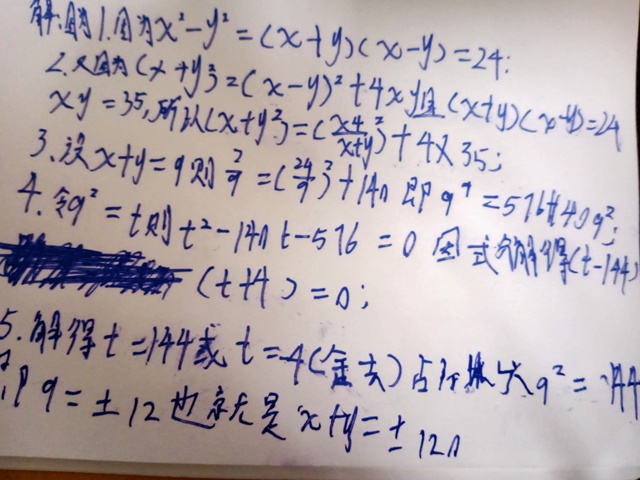 解:因为1.因为x²-y²=(x+y)(x-y)=24;
2.又因为(x+y)²=(x-y)²+4xy且(x+y)(x-y)=24
xy=35,所以(x+y²)=(x4/x+y)²+4X35;
3.设x+y=q则q²=(24/q)²+140即q⁴=576+140q²;
4.令q²=t则t²-140t-576=0因式分解得(t-144)
(t+4)=0;
5.解得t=144或t=-4(舍去)所以q²=144
即q=±12也就是x+y=±12。